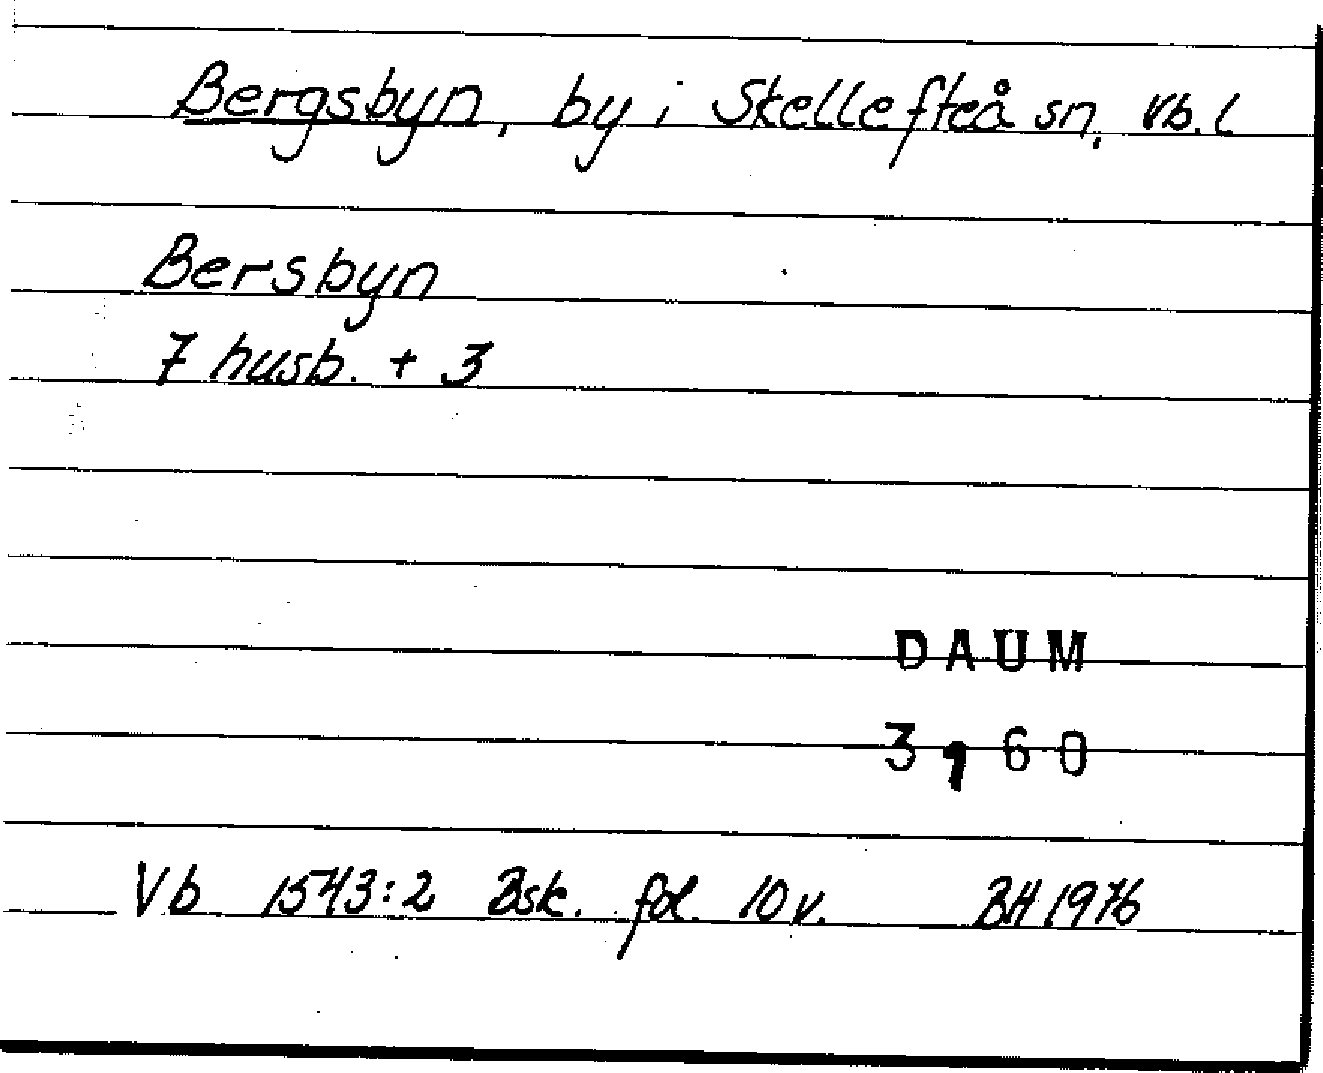 Bergsbyn, by i Skellefteå sn, Vb. l
Bersbyn
7 husb. + 3
DAUM
3960
Vb 1543:2 Bsk. fol. 10 v. BH 1976